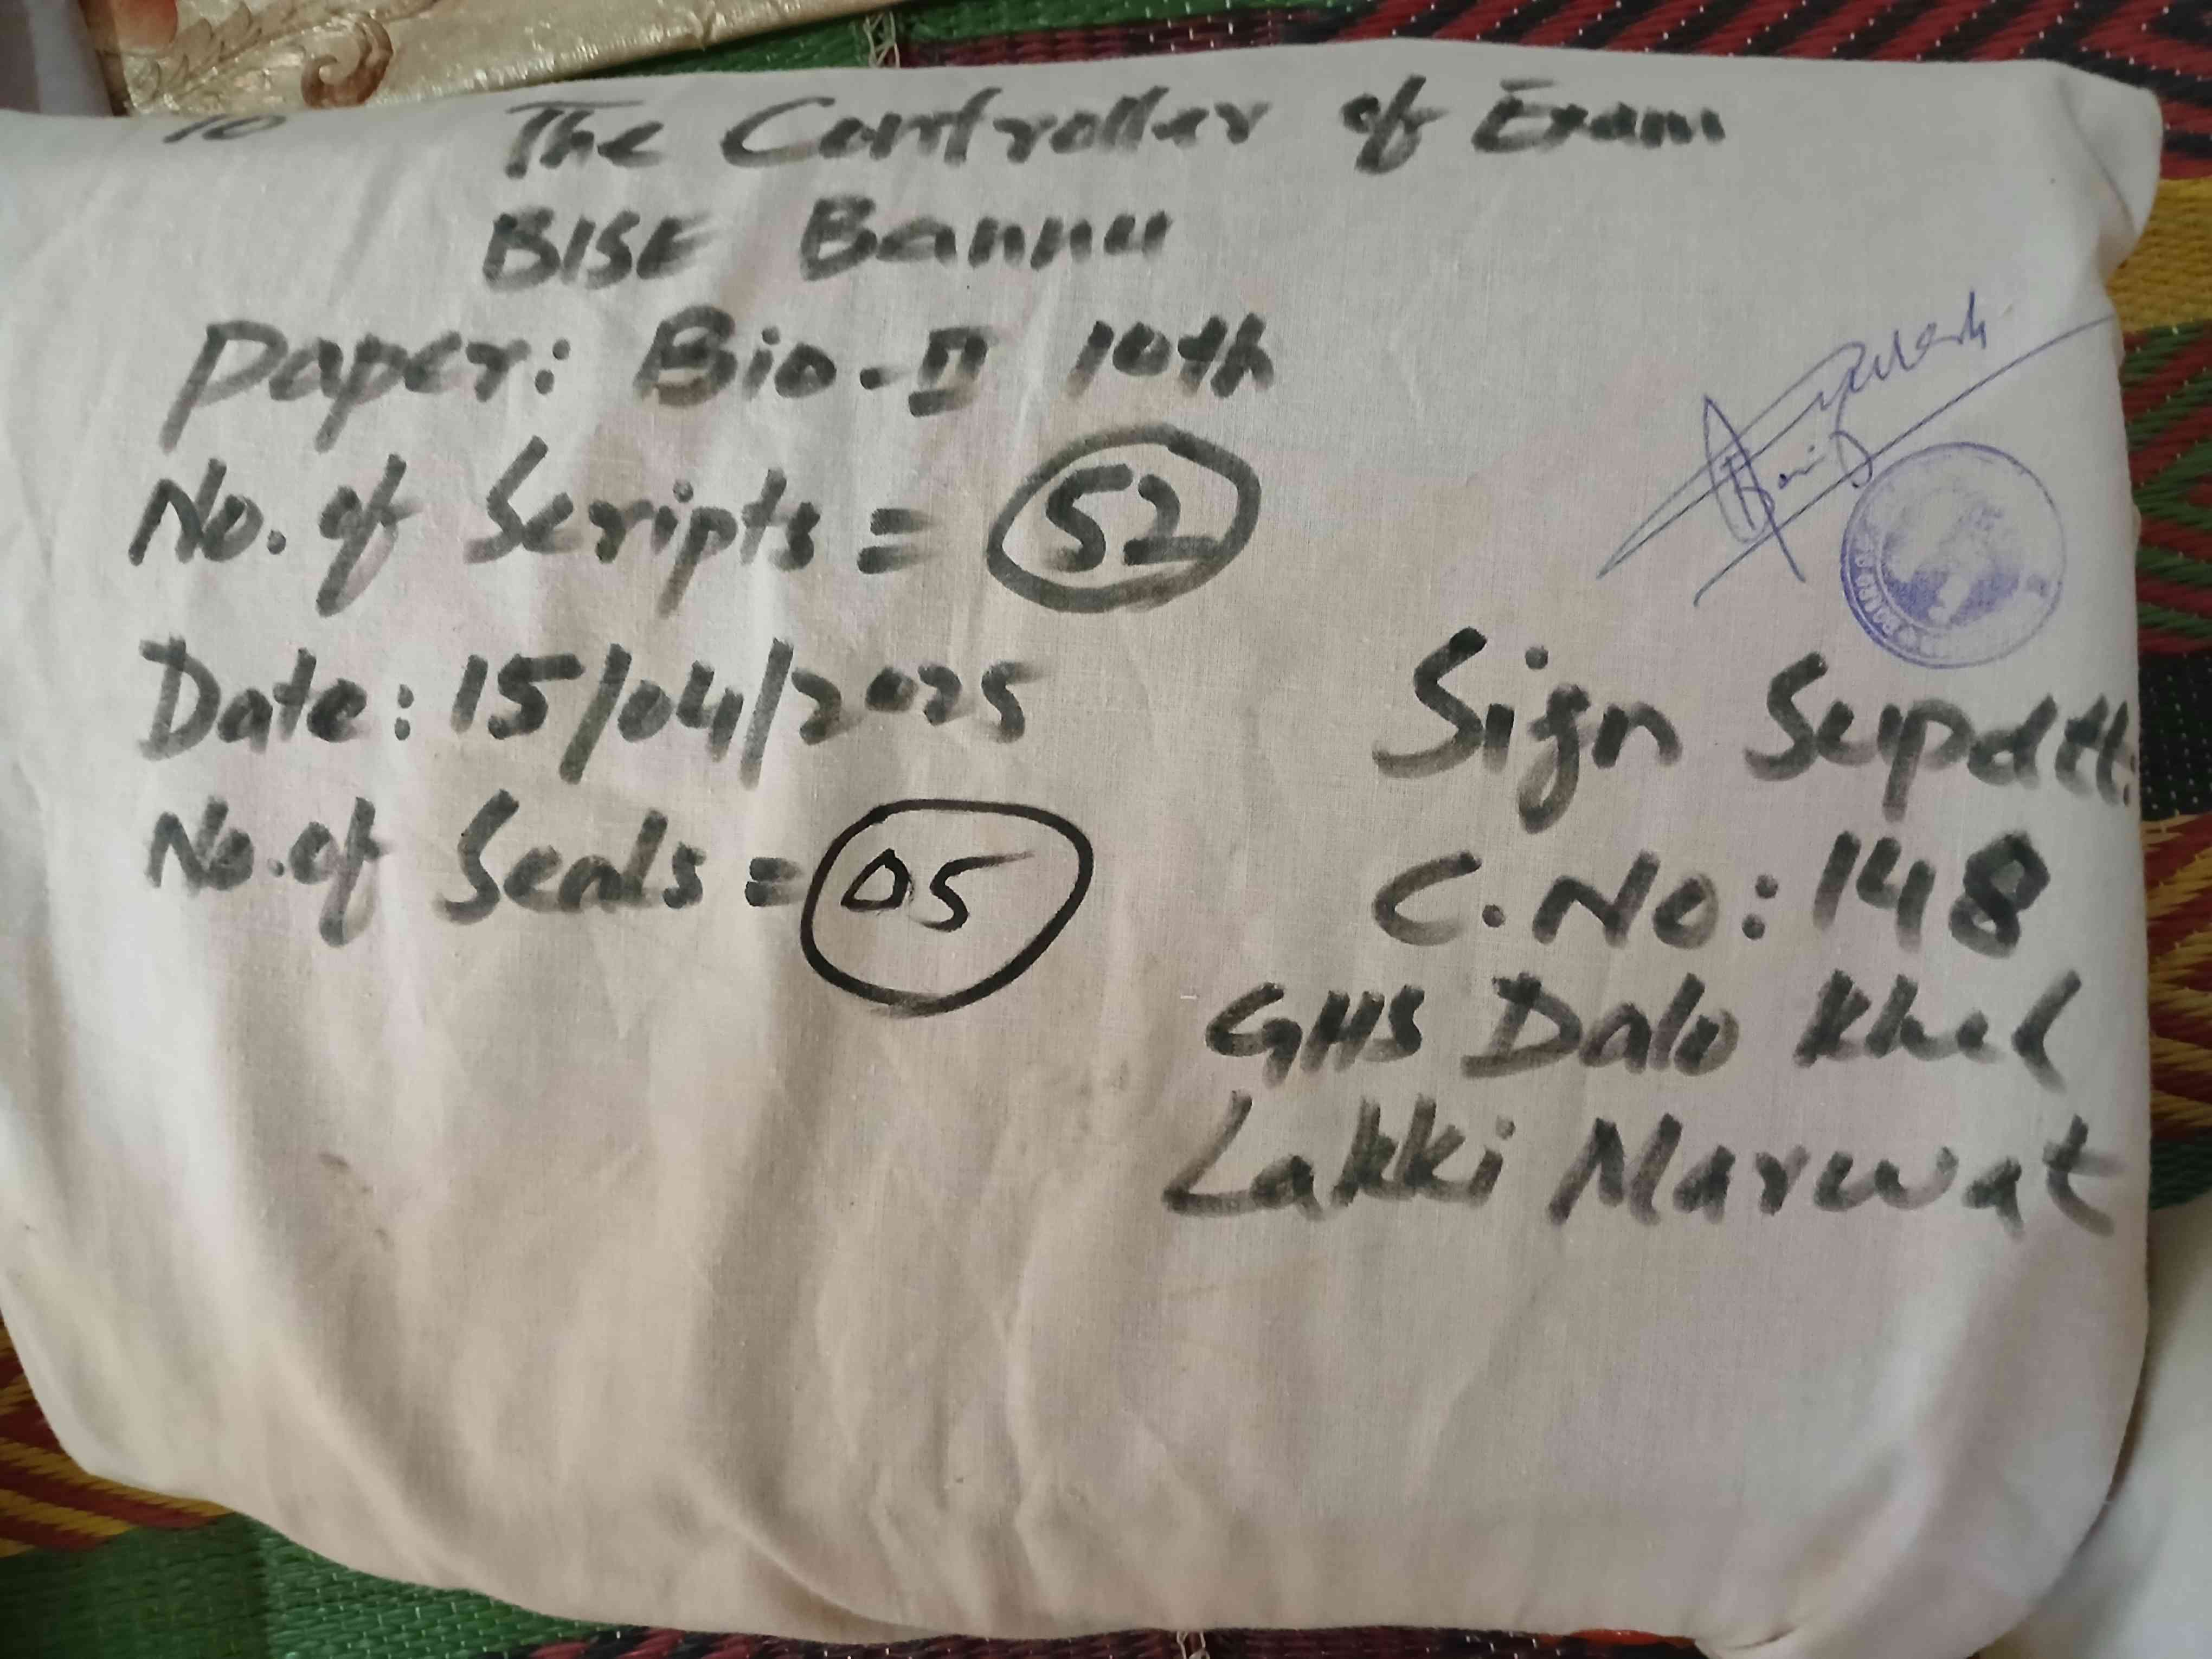 To
The Controller of Exam
BISE Bannu
Paper: Bio-II 10th
No. of Scripts = 52
Date: 15/04/2025
No. of Seals = 05
Sign Supdtt:
C.No: 148
GHS Dalo Khel
Lakki Marwat